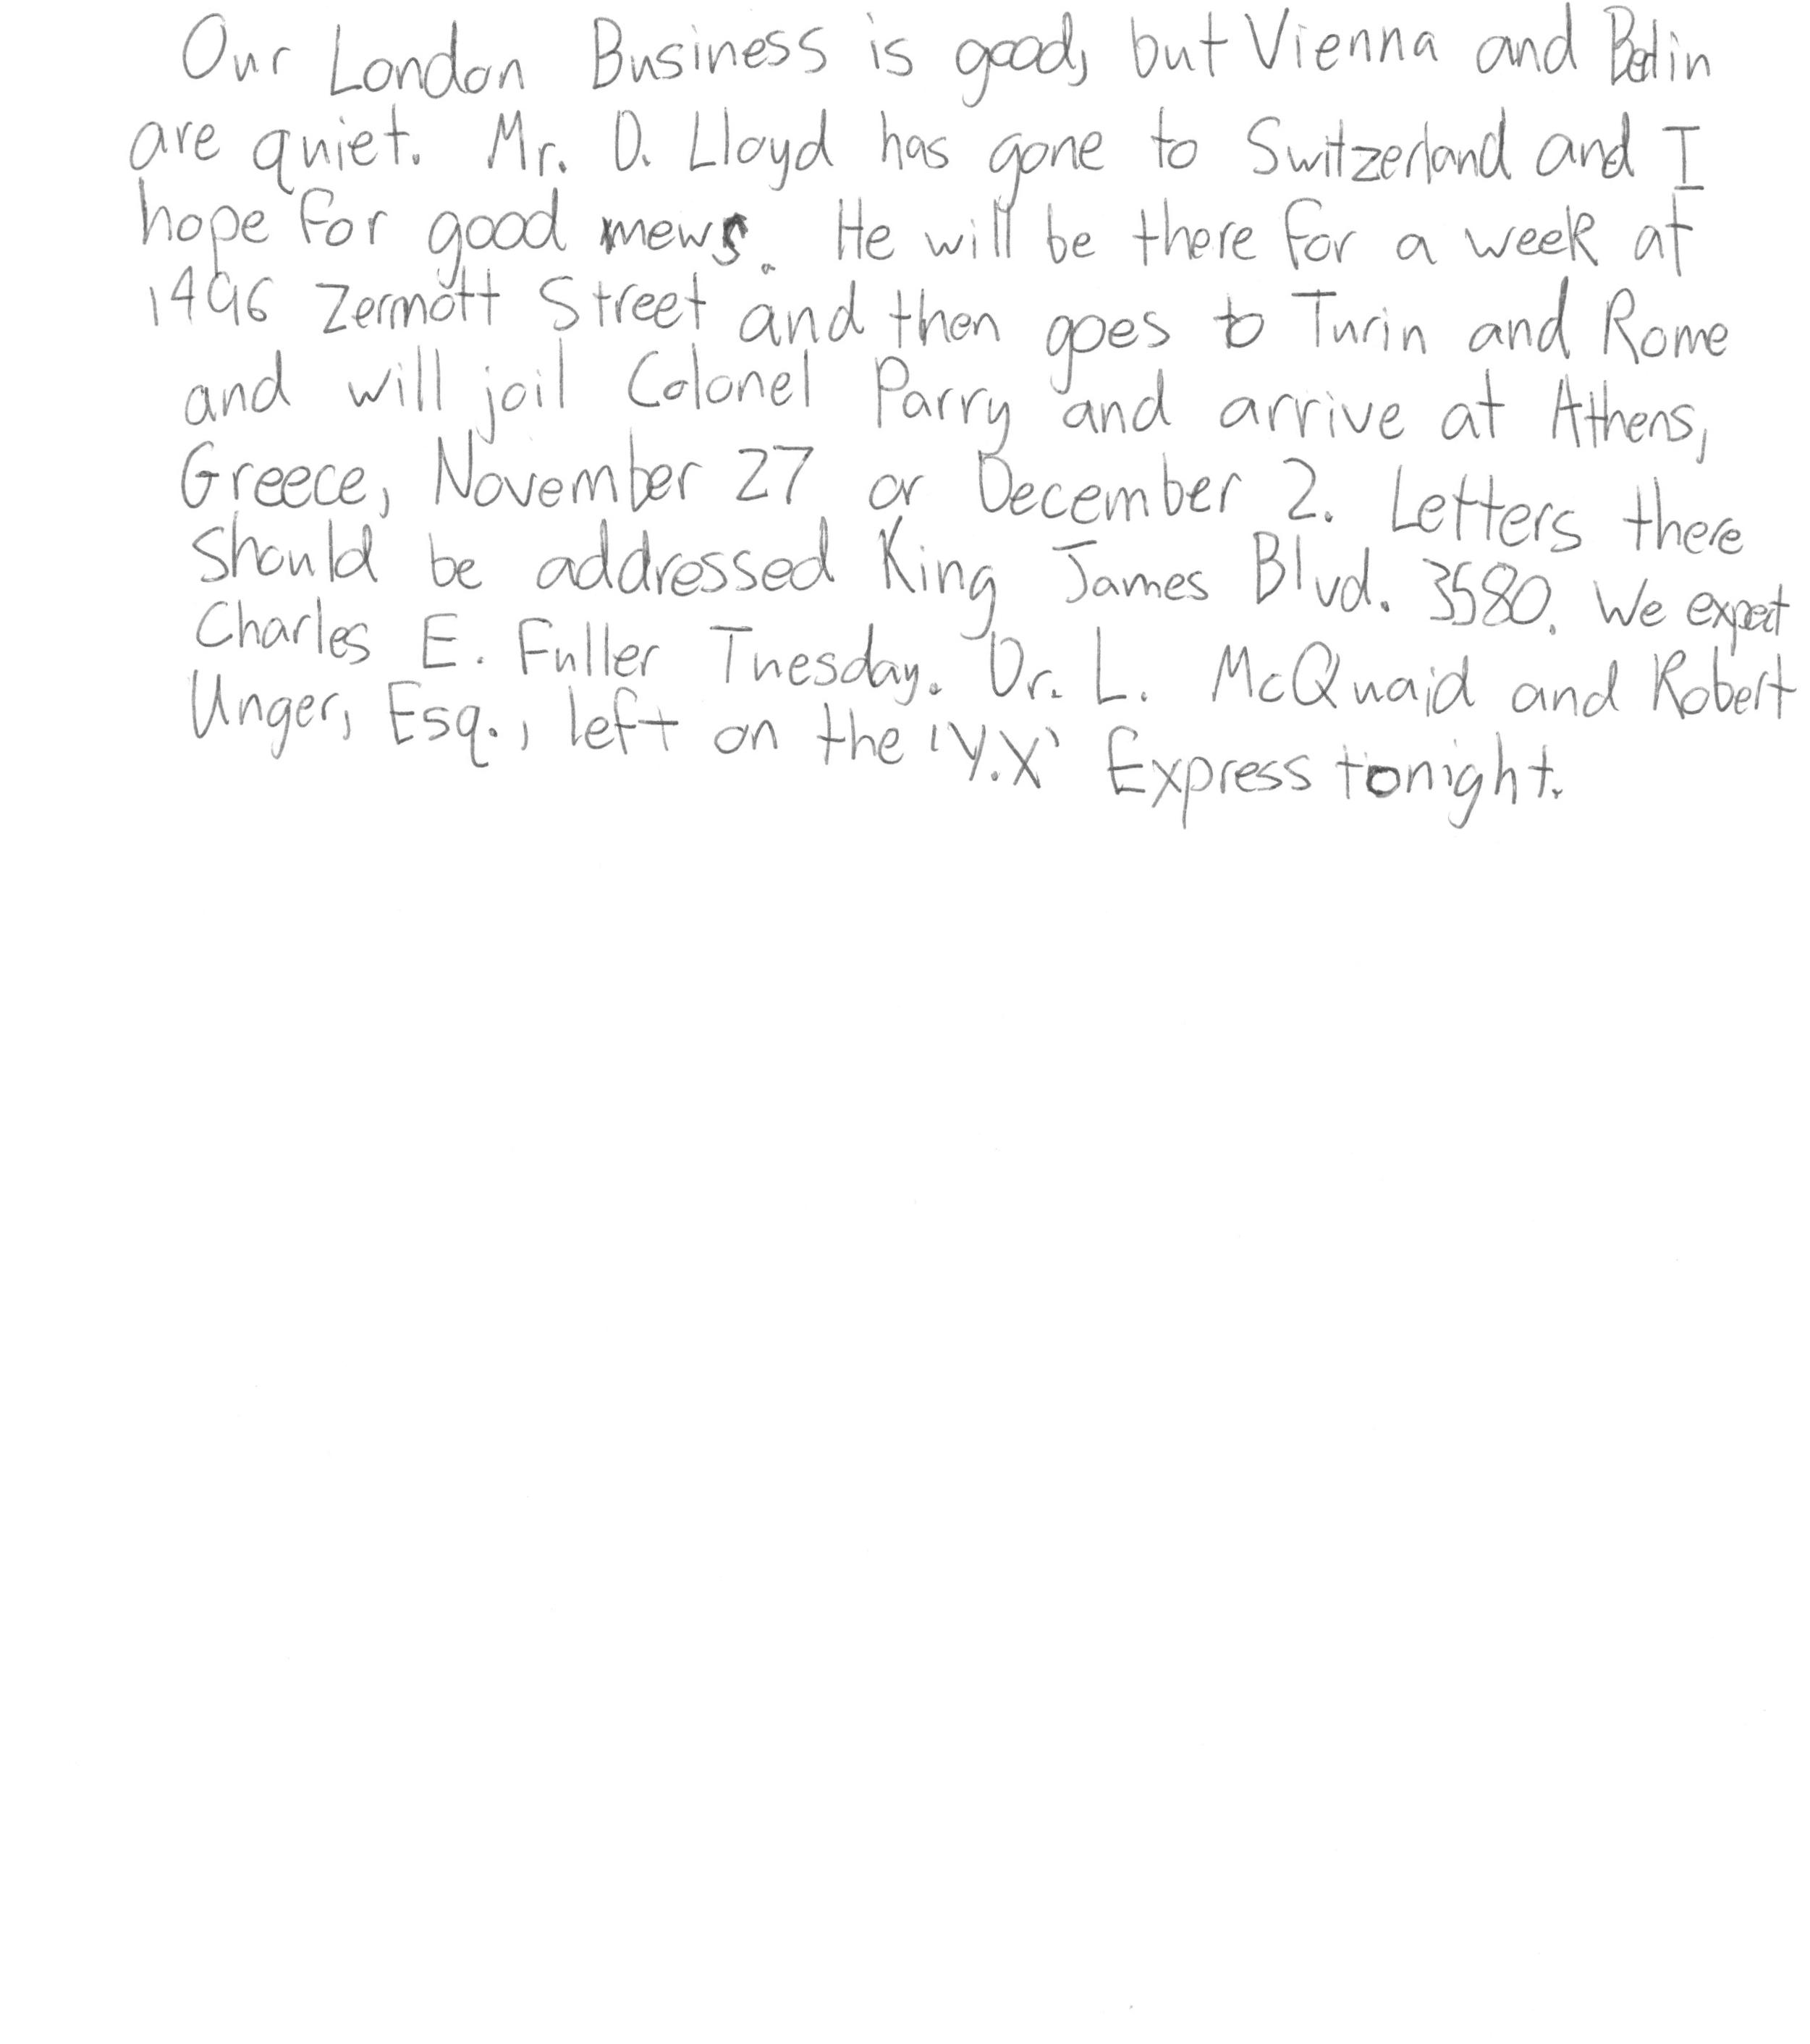 Our London Business is good, but Vienna and Berlin
are quiet. Mr. D. Lloyd has gone to Switzerland and I
hope for good mews. He will be there for a week at
1496 Zermott Street and then goes to Turin and Rome
and will joil Colonel Parry and arrive at Athens,
Greece, November 27 or December 2. Letters there
should be addressed King James Blvd. 3580. We expect
Charles E. Fuller Tuesday. Dr. L. McQuaid and Robert
Unger, Esq., left on the 'Y.X' Express tonight.